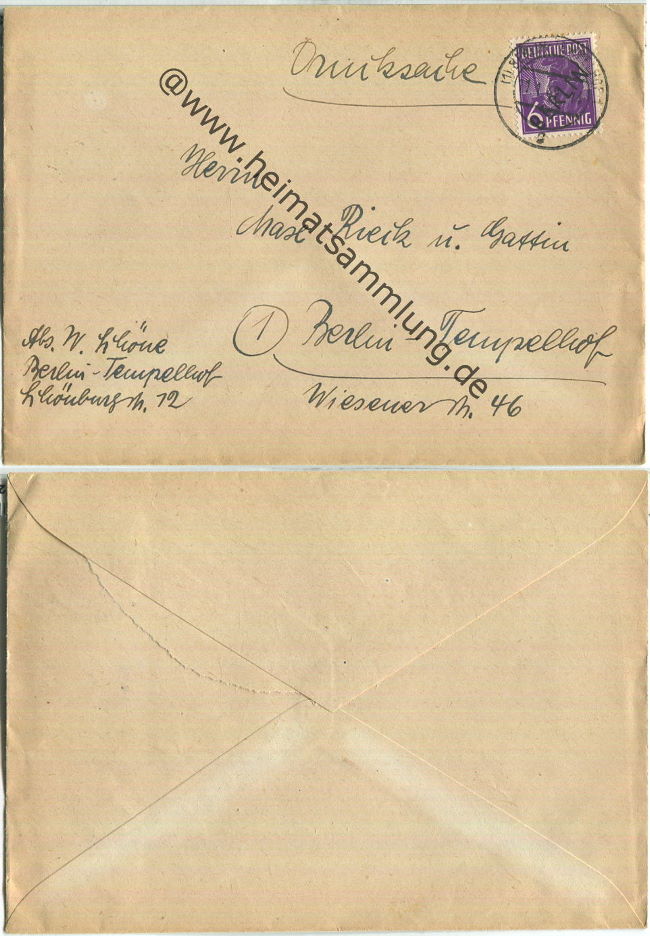 Drucksache
DEUTSCHE POST
BERLIN
6 PFENNIG
Herrn
Max Rieck u. Gattin
① Berlin-Tempelhof
Wiesenerstr. 46
Abs. W. Schöne
Berlin-Tempelhof
Schönburgstr. 12
@www.heimatsammlung.de